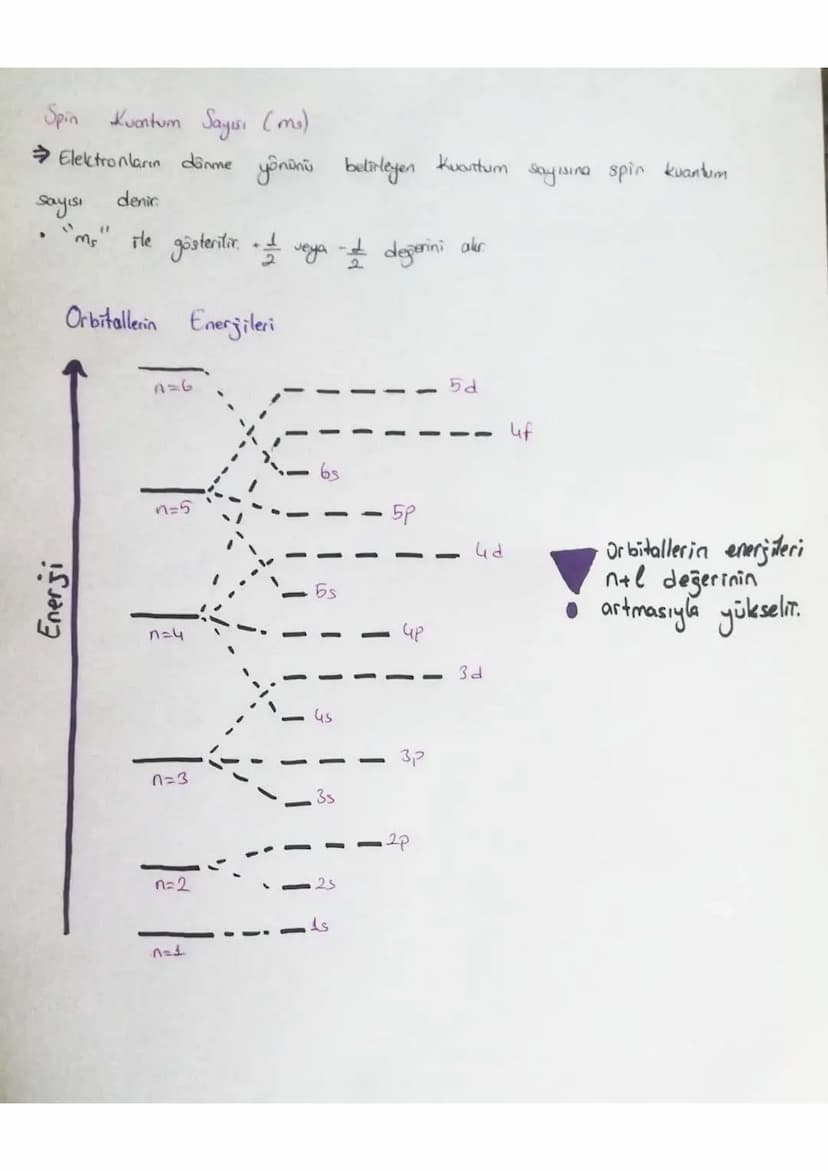 Spin Kuantum Sayısı (ms)
⇒ Elektronların dönme yönünü belirleyen kuantum sayısına spin kuantum
sayısı denir.
• "ms" ile gösterilir. +1/2 veya -1/2 değerini alır.
Orbitallerin Enerjileri
n=6
5d
4f
6s
n=5
5p
4d
Orbitallerin enerjileri
n+l değerinin
artmasıyla yükselir.
Enerji
5s
n=4
4p
3d
4s
n=3
3p
3s
2p
n=2
2s
1s
n=1